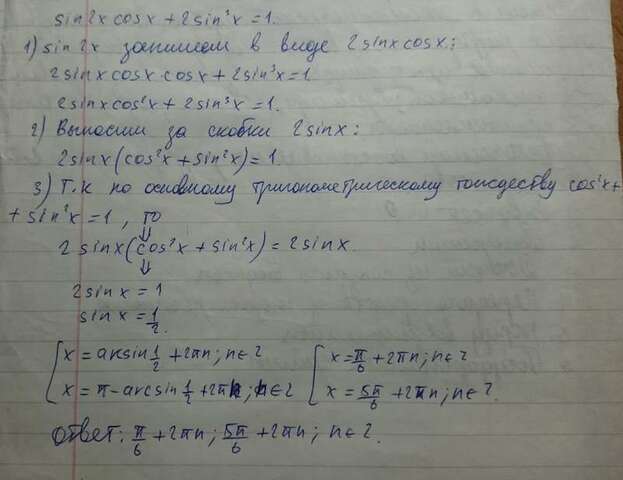 sin2x cosx + 2sin³x = 1.
1) sin2x запишем в виде 2sinxcosx:
2sinxcosx·cosx + 2sin³x = 1
2sinxcos²x + 2sin³x = 1.
2) Выносим за скобки 2sinx:
2sinx(cos²x + sin²x) = 1
3) Т.к по основному тригонометрическому тождеству cos²x +
+ sin²x = 1, то
2 sinx(cos²x + sin²x) = 2sinx.
⇓
2sinx = 1
sinx = 1/2.
[x = arksin 1/2 + 2πn; n∈Z [x = π/6 + 2πn; n∈Z
[x = π - arcsin 1/2 + 2πn; n∈Z [x = 5π/6 + 2πn; n∈Z.
Ответ: π/6 + 2πn; 5π/6 + 2πn; n∈Z.